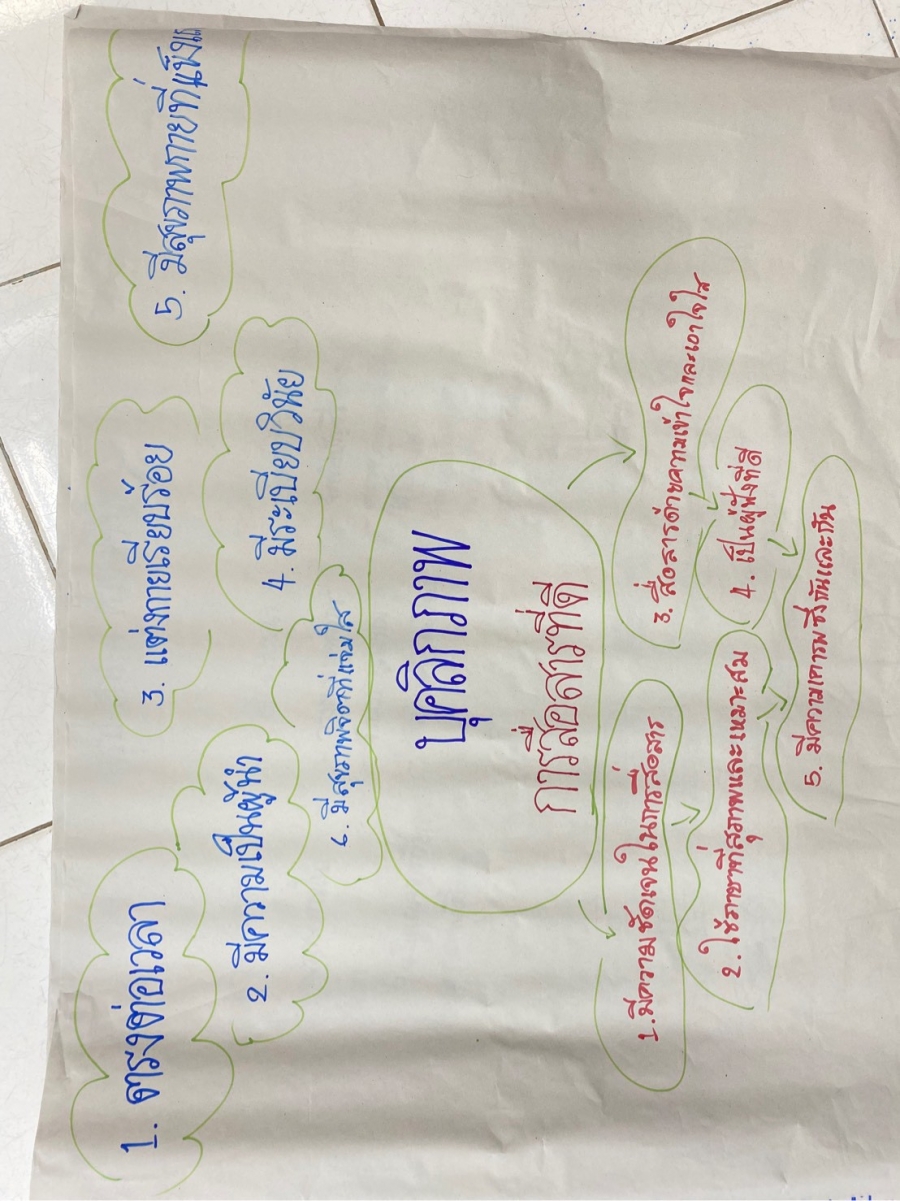 1. ตรงต่อเวลา
2. มีความเป็นผู้นำ
3. แต่งกายเรียบร้อย
4. มีระเบียบวินัย
5. มีสุขภาพกายที่แข็งแ
6. มีสุขภาพจิตที่แจ่มใส
บุคลิกภาพ
การสื่อสารที่ดี
1. มีความชัดเจนในการสื่อสาร
2. ใช้ภาษาที่สุภาพและเหมาะสม
3. สื่อสารด้วยความเข้าใจและเอาใจใส่
4. เป็นผู้ฟังที่ดี
5. มีความเคารพซึ่งกันและกัน